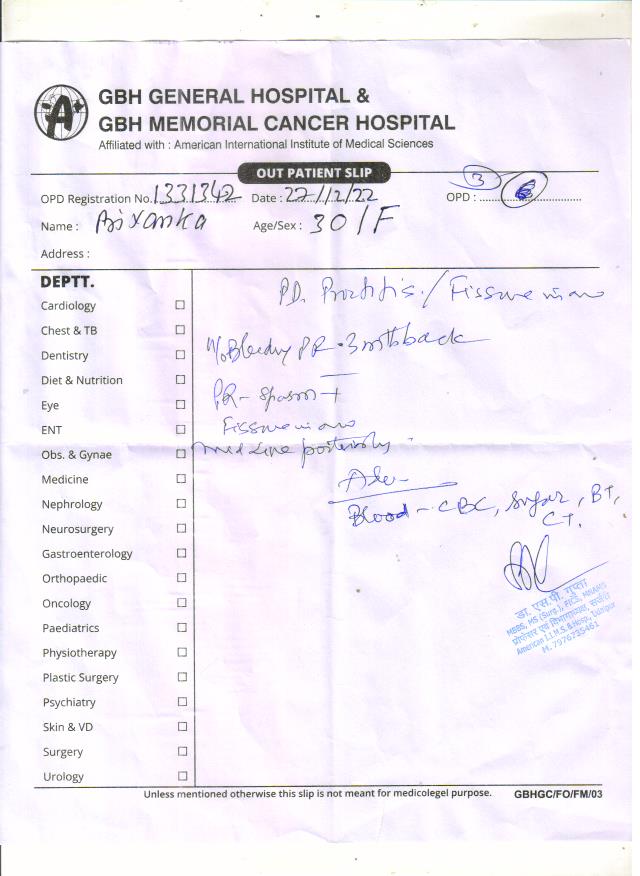 GBH GENERAL HOSPITAL &
GBH MEMORIAL CANCER HOSPITAL
Affiliated with : American International Institute of Medical Sciences
OUT PATIENT SLIP
OPD Registration No. 1331342 Date : 22/12/22 OPD : 3
Name : Age/Sex : 30/F
Address :
DEPTT.
P.D. Proctitis / Fissure in ano
Cardiology
Chest & TB
H/o Bleeding PR - 3 mth back
Dentistry
Diet & Nutrition
PR - spasm +
Eye
Fissure in ano
ENT
midline posteriorly
Obs. & Gynae
Medicine
Adv -
Blood - CBC, Sugar, BT,
CT.
Nephrology
Neurosurgery
Gastroenterology
Orthopaedic
Oncology
Paediatrics
Physiotherapy
Plastic Surgery
Psychiatry
Skin & VD
Surgery
Urology
डा. एस.पी. गुप्ता
MBBS, MS (Surg.), FICS, MNAMS
प्रोफेसर एवं विभागाध्यक्ष, सर्जरी
American I.I.M.S. & Hosp., Udaipur
M. 7976735461
Unless mentioned otherwise this slip is not meant for medicolegel purpose. GBHGC/FO/FM/03